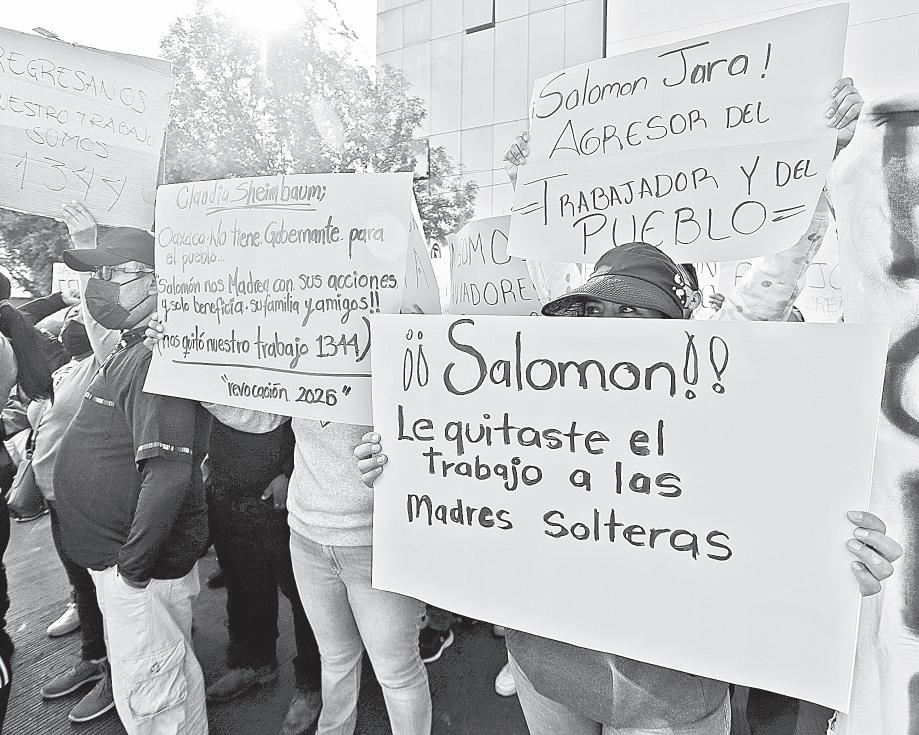 REGRESANOS
NUESTRO TRABAJO
SOMOS
1344
Claudia Sheimbaum;
Oaxaca. No tiene. Gobernante. para
el pueblo...
Salomón nos Madrea con sus acciones
y solo beneficia. su familia y amigos!!
(nos quitó nuestro trabajo 1344)
"revocación 2026"
¡Salomon Jara!
AGRESOR DEL
=TRABAJADOR Y DEL
PUEBLO=
¡¡Salomon!!
Le quitaste el
trabajo a las
Madres Solteras